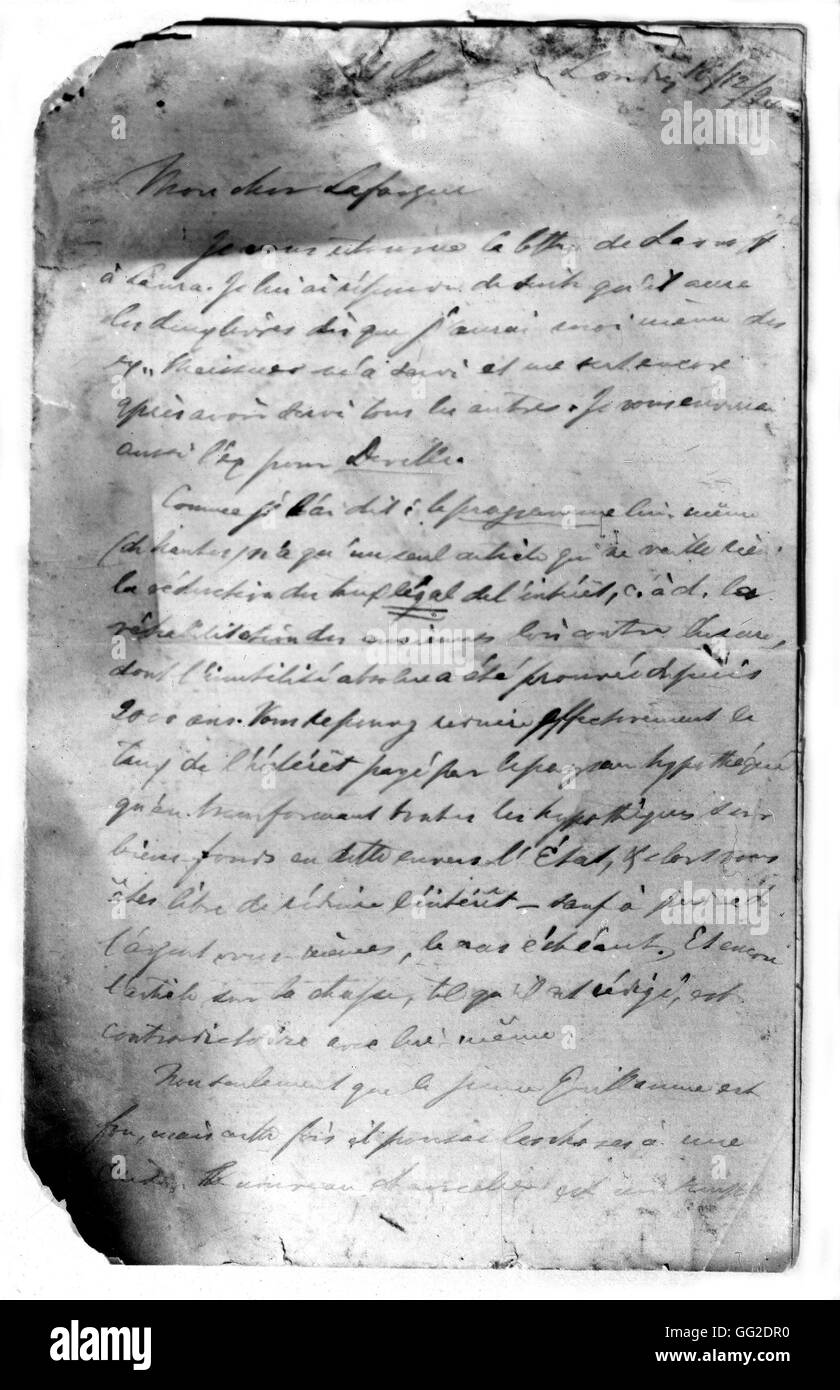 Londres 18/12/94
Mon cher Lafargue
Je vous retourne la lettre de
à Laura. Je lui ai répondu de suite qu'il aura
les deux livres dès que j'aurai moi même des
ex.. Meissner m'a servi et me sert encore
après avoir servi tous les autres. Je vous enverrai
aussi l'ex pour Deville.
Comme je l'ai dit : le programme lui-même
(de Nantes) n'a qu'un seul article qui ne vaille rien:
la réduction du taux légal de l'intérêt, c. à d. la
réhabilitation des anciennes lois contre l'usure,
dont l'inutilité absolue a été prouvée depuis
2000 ans. Vous ne pouvez réduire effectivement le
taux de l'intérêt payé par le paysan hypothéqué
qu'en transformant toutes les hypothèques sur
biens-fonds en dette envers l'État, & alors vous
êtes libre de réduire l'intérêt — sauf à
l'argent vous-mêmes, le cas échéant. Et encore
l'article sur la chasse, tel qu'il est rédigé, est
contradictoire avec lui-même
Non seulement que le jeune Guillaume est
fou, mais cette fois il pousse les choses à une
Le nouveau chancelier est un
alamy
Image ID: GG2DR0
www.alamy.com